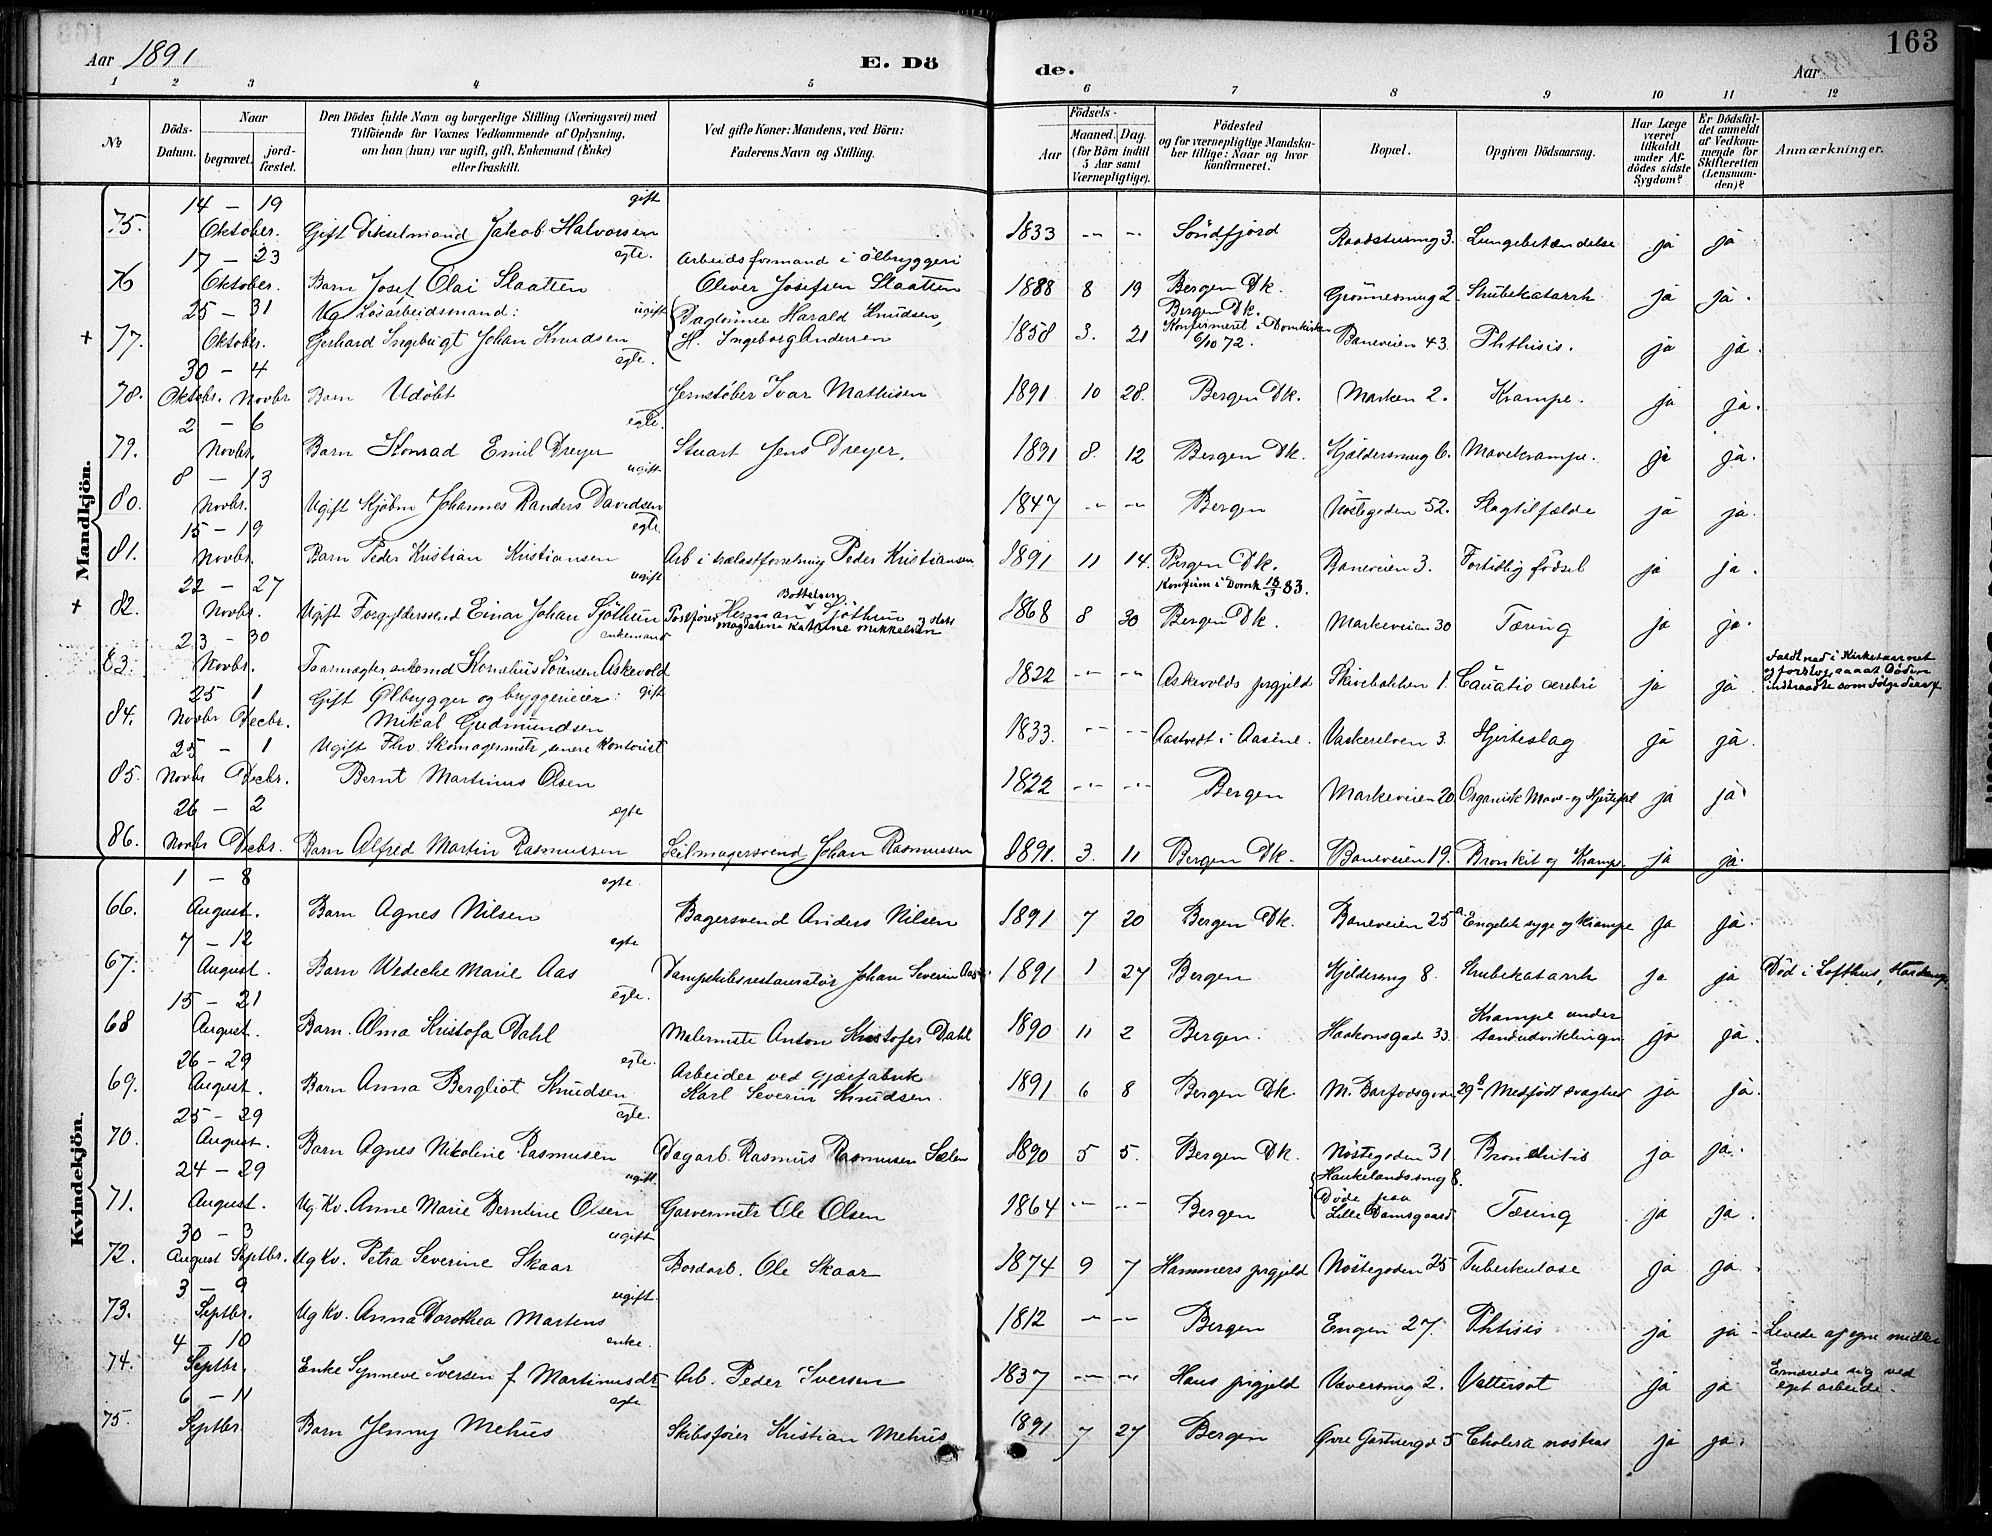 Aar 1891
E. Dö
de.
Aar
163
1 2 3 4 5 6 7 8 9 10 11 12
№
Döds-Datum.
Naar
begravet.
jordfæstet.
Den Dödes fulde Navn og borgerlige Stilling (Næringsvei) med
Tilföiende for Voxnes Vedkommende af Oplysning,
om han (hun) var ugift, gift, Enkemand (Enke)
eller fraskilt.
Ved gifte Koner: Mandens, ved Börn:
Faderens Navn og Stilling.
Födsels-
Aar
Maaned. Dag.
(for Börn indtil
5 Aar samt
Værnepligtige).
Födested
og for værnepligtige Mandskaber tillige: Naar og hvor
konfirmeret.
Bopæl.
Opgiven Dödsaarsag.
Har Læge
været
tilkaldt
under Afdödes sidste
Sygdom?
Er Dödsfaldet anmeldt
af Vedkommende for
Skifteretten
(Lensmanden)?
Anmærkninger.
Mandkjön.
75. 14 – 19 Oktober. gift Gift Jakob Halvorsen 1833 -- -- Söndfjord 3. Lungebetændelse ja ja
76 17 – 23 Oktober. egte. Barn Josef Olai Slaatten Arbeidsformand i ölbryggeri Oliver Josefsen Slaatten 1888 8 19 Bergen Dk. Grönnesmug 2 Strubekatarrh ja ja.
+ 77. 25 – 31 Oktober. ugift Ug Lösarbeidsmand: Gerhard Ingebrigt Johan Knudsen Daglönner Harald Knudsen, H. Ingeborg Andersen 1858 3. 21 Bergen Dk. Konfirmeret i Domkirken 6/10 72. Baneveien 43. Phthisis. ja ja.
78. 30 – 4 Oktobr. Novbr egte. Barn Udöbt Jernstöber Ivar Mathisen 1891 10 28. Bergen Dk. Marken 2. Krampe. ja ja.
79. 2 – 6 Novbr. egte. Barn Konrad Emil Dreyer Stuart Jens Dreyer. 1891 8. 12 Bergen Dk. Kjeldersmug 6. Mavekrampe. ja ja.
80. 8 – 13 Novbr. ugift Ugift Kjöbm Johannes Randers Davidsen 1847 -- -- Bergen Nöstegaden 52. Slagtilfælde ja ja.
81. 15 – 19 Novbr. egte Barn Peder Kristian Kristiansen Arb i trælastforretning Peder Kristiansen 1891 11 14. Bergen Dk. Baneveien 3. Fortidlig födsel ja ja.
+ 82. 22 – 27 Novbr. ugift Ugift Forgyldersvend Einar Johan Sjöthun Herman Bottolsen Sjöthun og Magdalene Kathrine Mikkelsen 1868 8 30 Konfirm i Domk 83. Bergen Dk. Markeveien 30 Tæring ja ja.
83. 23 – 30 Novbr. enkemand Taarnvægter, enkemd Kornelius Sörensen Askevold 1822 -- -- Askevolds prgjeld Skivebakken 1. ja ja Faldt ned i Kirketaarnet og forslog saaat Döden indtraadte som fölge deraf
84. 25 1 Novbr Decbr. gift Gift Ölbrygger og bryggerieier: Mikal Gudmundsen 1833. -- -- Vaskerelven 3. Hjerteslag ja ja.
85. 25 – 1 Novbr Decbr. Ugift Fhv. Skomagermstr, senere Kontorist Bernt Martinus Olsen 1822 -- -- Bergen Markeveien 20. Organisk Mave- og Hjertefeil ja ja
86. 26 – 2 Novbr Decbr. egte Barn Alfred Martin Rasmussen Seilmagersvend Johan Rasmussen 1891. 3. 11 Bergen Dk. Baneveien 19. Bronkit og Krampe. ja ja.
Kvindekjön.
66. 1 – 8 August. egte. Barn Agnes Nilsen Bagersvend Anders Nilsen 1891 7 20 Bergen Dk. Baneveien 25 a Engelsk syge og Krampe ja ja.
67. 7 – 12 August. egte Barn Wedecke Marie Aas Dampskibsrestauratör Johan Severin Aas 1891 1 27 Bergen Kjeldersmug 8. Strubekatarrh ja ja Död i Lofthus, Hardanger
68 15 – 21 August. egte. Barn. Alma Kristofa Dahl Malermstr Anton Kristofer Dahl 1890 11 2 Bergen. Haakonsgad 33. Krampe under tandudviklingn ja ja.
69. 26 – 29 August. egte. Barn Anna Bergliot Knudsen Arbeider ved gjærfabrik Karl Severin Knudsen. 1891 6 8 Bergen Dk. 29 a Medfödt svaghed ja ja.
70. 25 – 29 August. egte. Barn Agnes Nikoline Rasmusen Dagarb. Rasmus Rasmusen Sælen 1890 5 5. Bergen Dk. Nöstegaden 31 Bronchitis ja ja.
71. 24 – 29 August. ugift. Ug. Kv. Anne Marie Berntine Olsen Garvermstr Ole Olsen 1864 -- -- Bergen Haukelandssmug 8. Döde paa Lille Damsgaard. Tæring ja ja.
72. 30 – 3 August Septbr. ugift Ug Kv. Petra Severine Skaar Bordarb. Ole Skaar 1874 9 7 Hammers prgjeld Nöstegaden 25 Tuberkulose ja ja.
73. 3 – 9 Septbr. ugift. Ug Kv. Anna Dorothea Martens 1812 -- -- Bergen Engen 27. Phtisis ja ja Levede af egne midler
74. 4 – 10 Septbr. enke. Enke Synneve Iversen f Martinusdr Arb. Peder Iversen 1837 -- -- Haus prgjeld Væversmug 2. Vattersot ja ja Ernærede sig ved eget arbeide.
75. 6 – 11 Septbr. egte Barn Jenny Mehus Skibsförer Kristian Mehus 1891 7 27 Bergen Övre 5 Cholera nostras ja ja.